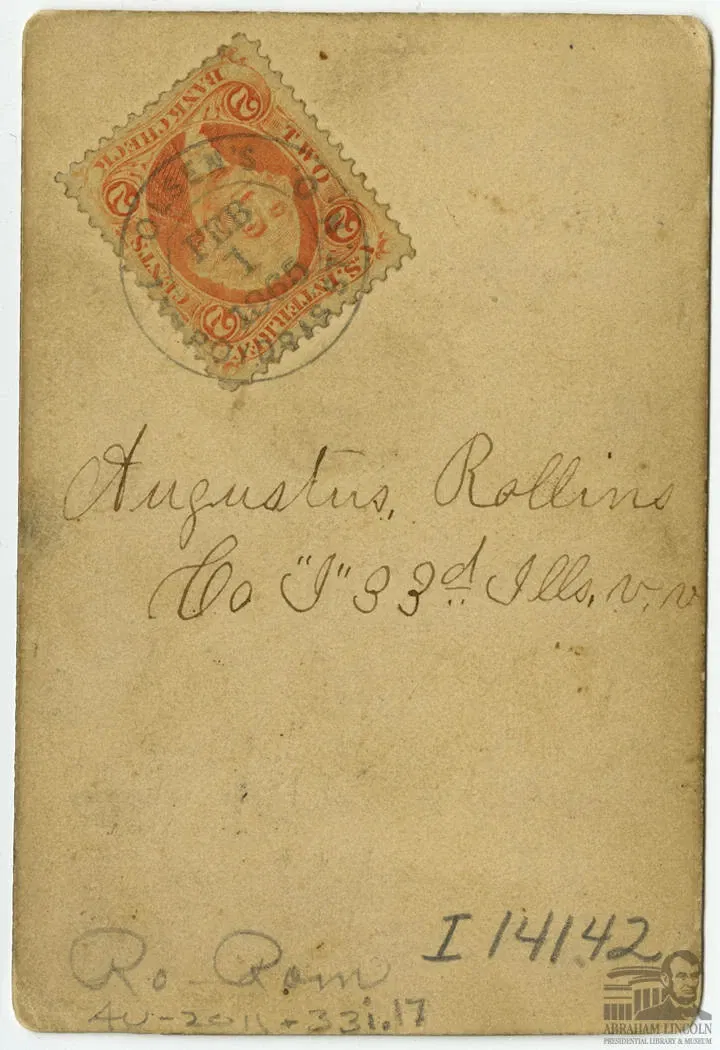 BANK CHECK
2
TWO
2
2
CENTS
2
U.S. INTER. REV.
OLSEN'S
FEB
1
1865
Augustus, Rollins
Co "I" 33d Ills, v, v
I 14142
Ro - Rom
ABRAHAM LINCOLN
PRESIDENTIAL LIBRARY & MUSEUM